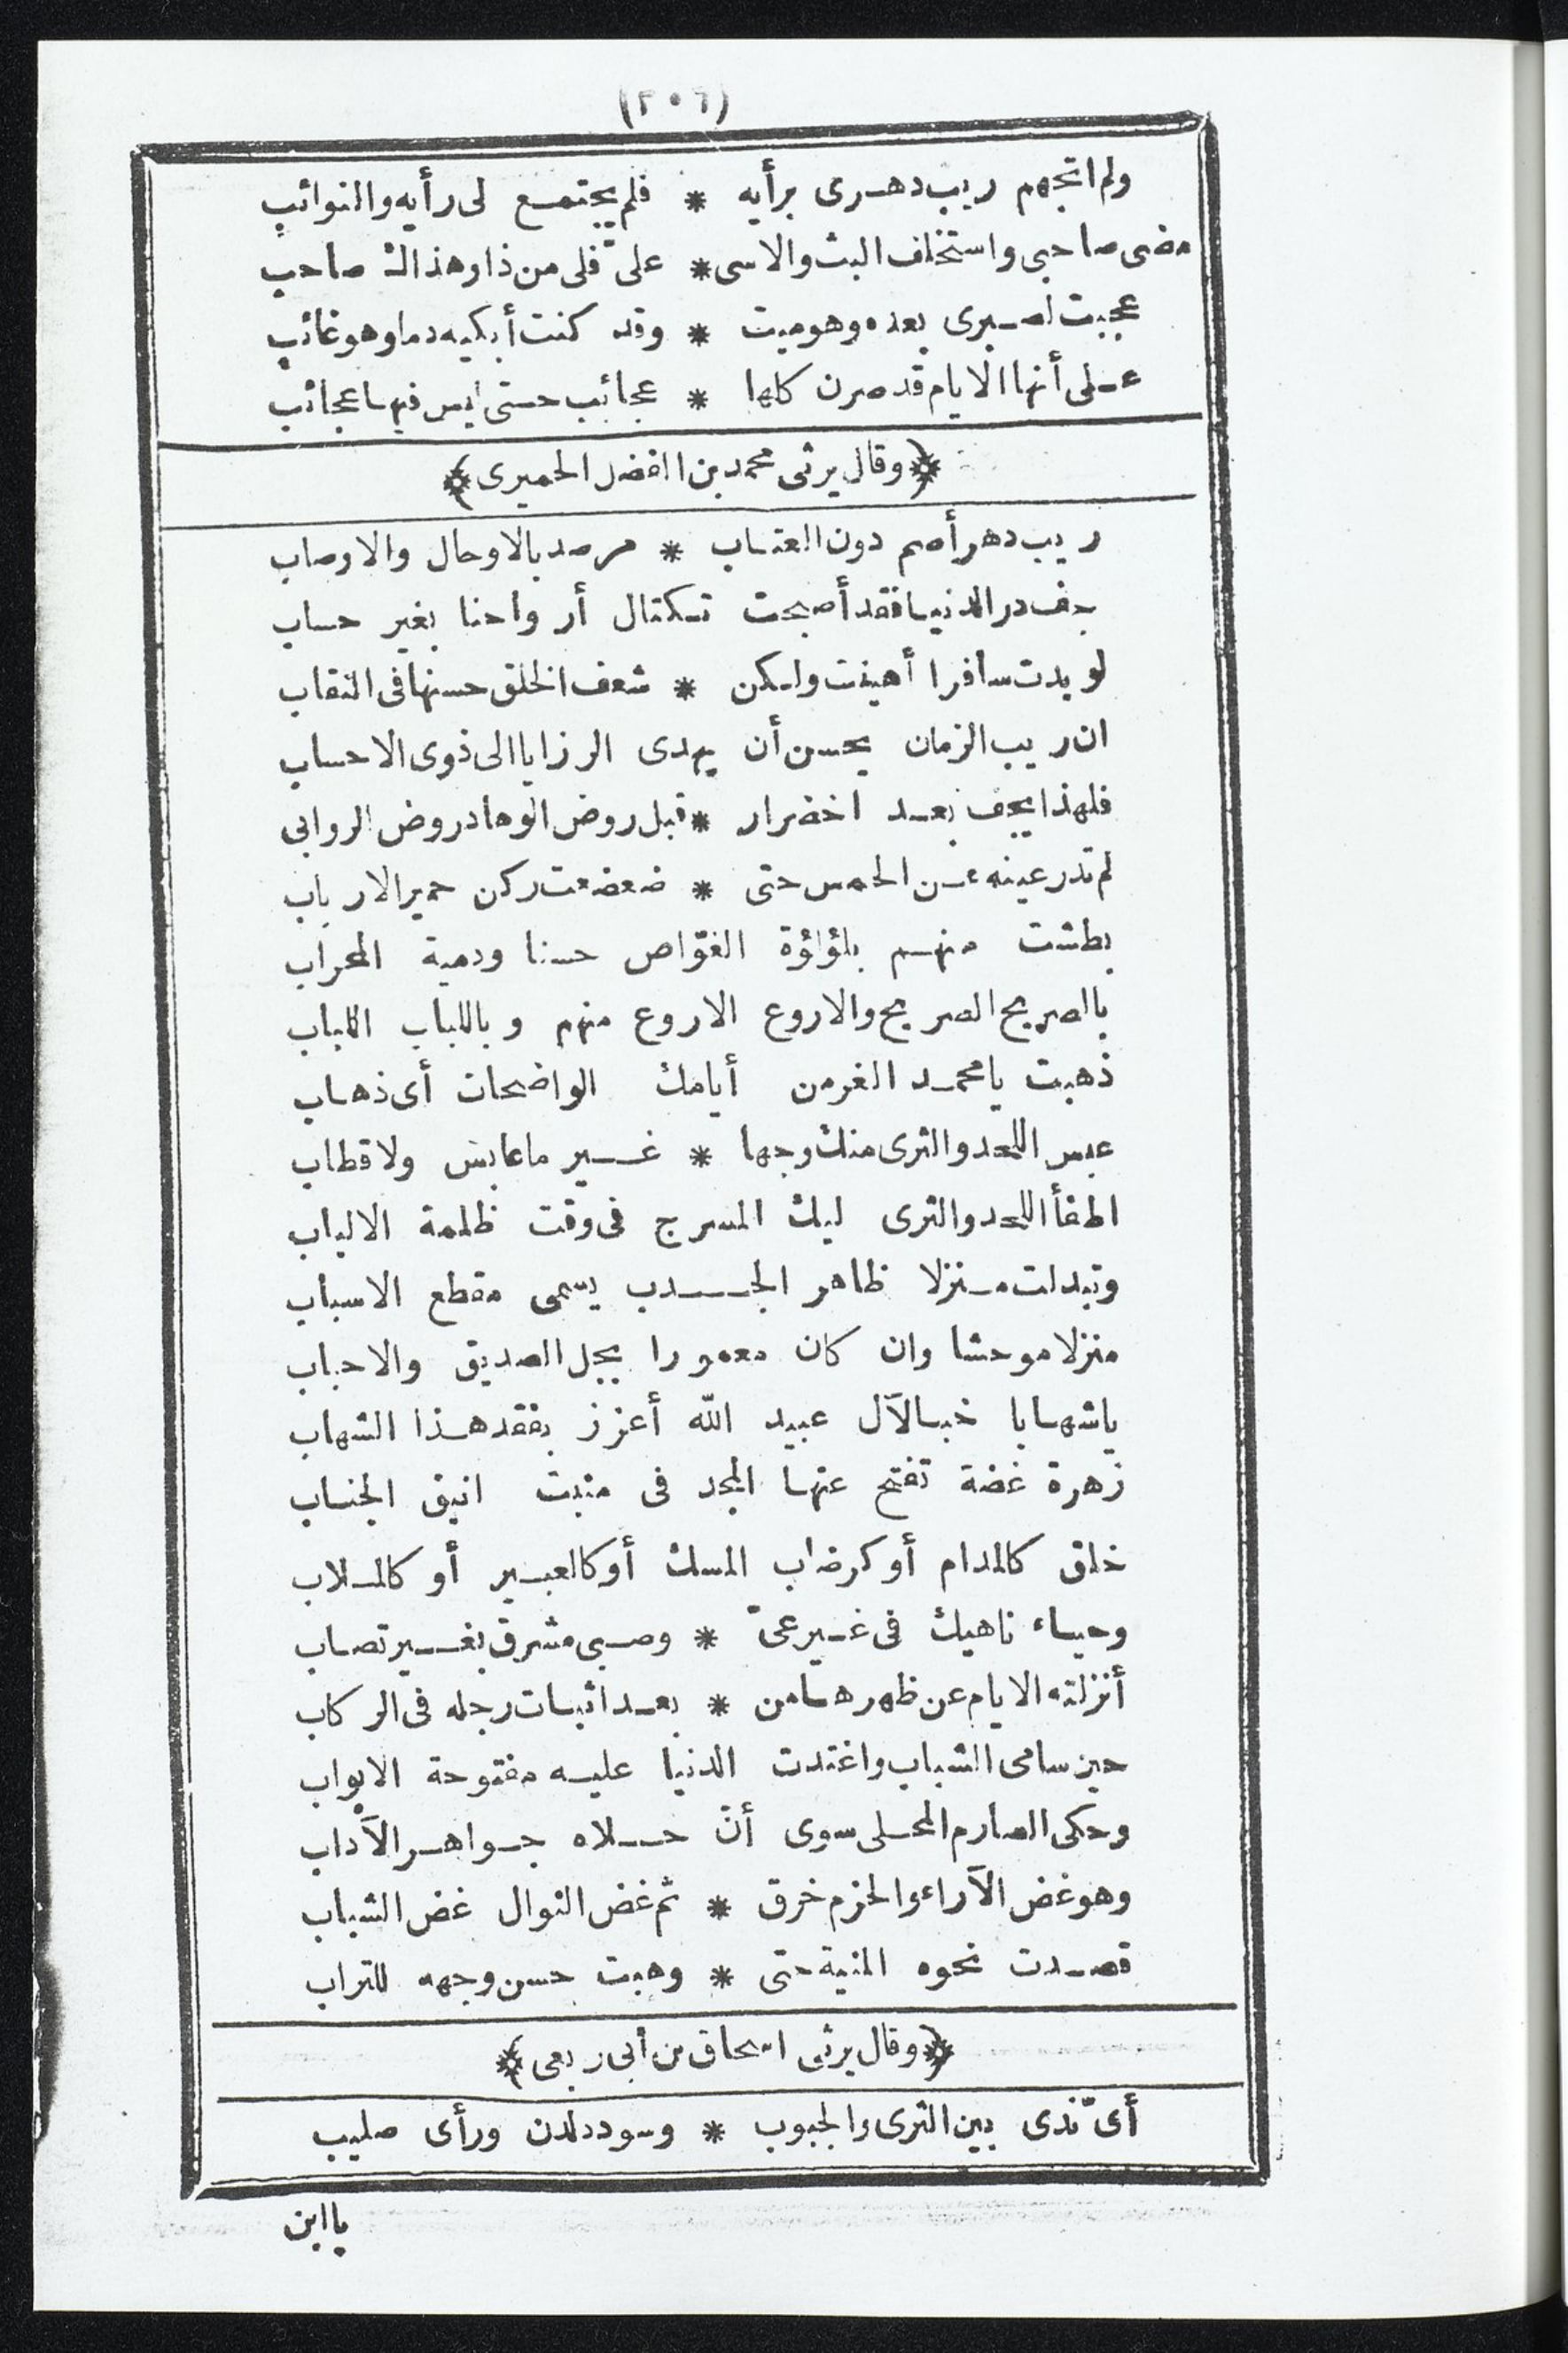 (٢٠٦)
ولم اتجهم ريب دهرى برأيه * فلم يجتمع لى رأيه والنوائب
مضى صاحبى واستخلف البث والاسى * علىّ فلى من ذا وهذاك صاحب
عجبت لصبرى بعده وهو ميت * وقد كنت أبكيه دما وهو غائب
على أنها الايام قد صرن كلها * عجائب حتى ليس فيها عجائب
﴿وقال يرثى محمد بن الفضل الحميرى﴾
ريب دهر أصم دون العتاب * مرصد بالاوجال والاوصاب
جف در الدنيا فقد أصبحت تكتال أرواحنا بغير حساب
لو بدت سافرا أهينت ولكن * شعف الخلق حسنها فى النقاب
ان ريب الزمان يحسن أن يهدى الرزايا الى ذوى الاحساب
فلهذا يجف بعد اخضرار * قبل روض الوهاد روض الروابى
لم تدر عينه عن الحمس حتى * ضعضعت ركن حمير الارباب
بطشت منهم بلؤلؤة الغوّاص حسنا ودمية المحراب
بالصريح الصريح والاروع الاروع منهم وباللباب اللباب
ذهبت يا محمد الغر من أيامك الواضحات أى ذهاب
عبس اللحد والثرى منك وجها * غير ما عابس ولا قطاب
اطفأ اللحد والثرى لبك المسرج فى وقت ظلمة الالباب
وتبدلت منزلا ظاهر الجدب يسمى مقطع الاسباب
منزلا موحشا وان كان معمورا بجل الصديق والاحباب
يا شهابا خبا لآل عبيد الله أعزز بفقد هذا الشهاب
زهرة غضة تفتح عنها المجد فى منبت انيق الجناب
خلق كالمدام أو كرضاب المسك أو كالعبير أو كالملاب
وحياء ناهيك فى غير عىّ * وصبى مشرق بغير تصاب
أنزلته الايام عن ظهرها من * بعد اثبات رجله فى الركاب
حين سامى الشباب واغتدت الدنيا عليه مفتوحة الابواب
وحكى الصارم المحلى سوى أنّ حلاه جواهر الآداب
وهو غض الآراء والحزم خرق * ثم غض النوال غض الشباب
قصدت نحوه المنية حتى * وهبت حسن وجهه للتراب
﴿وقال يرثى اسحاق بن أبى ربعى﴾
أىّ ندى بين الثرى والجبوب * وسودد لدن ورأى صليب
يا ابن